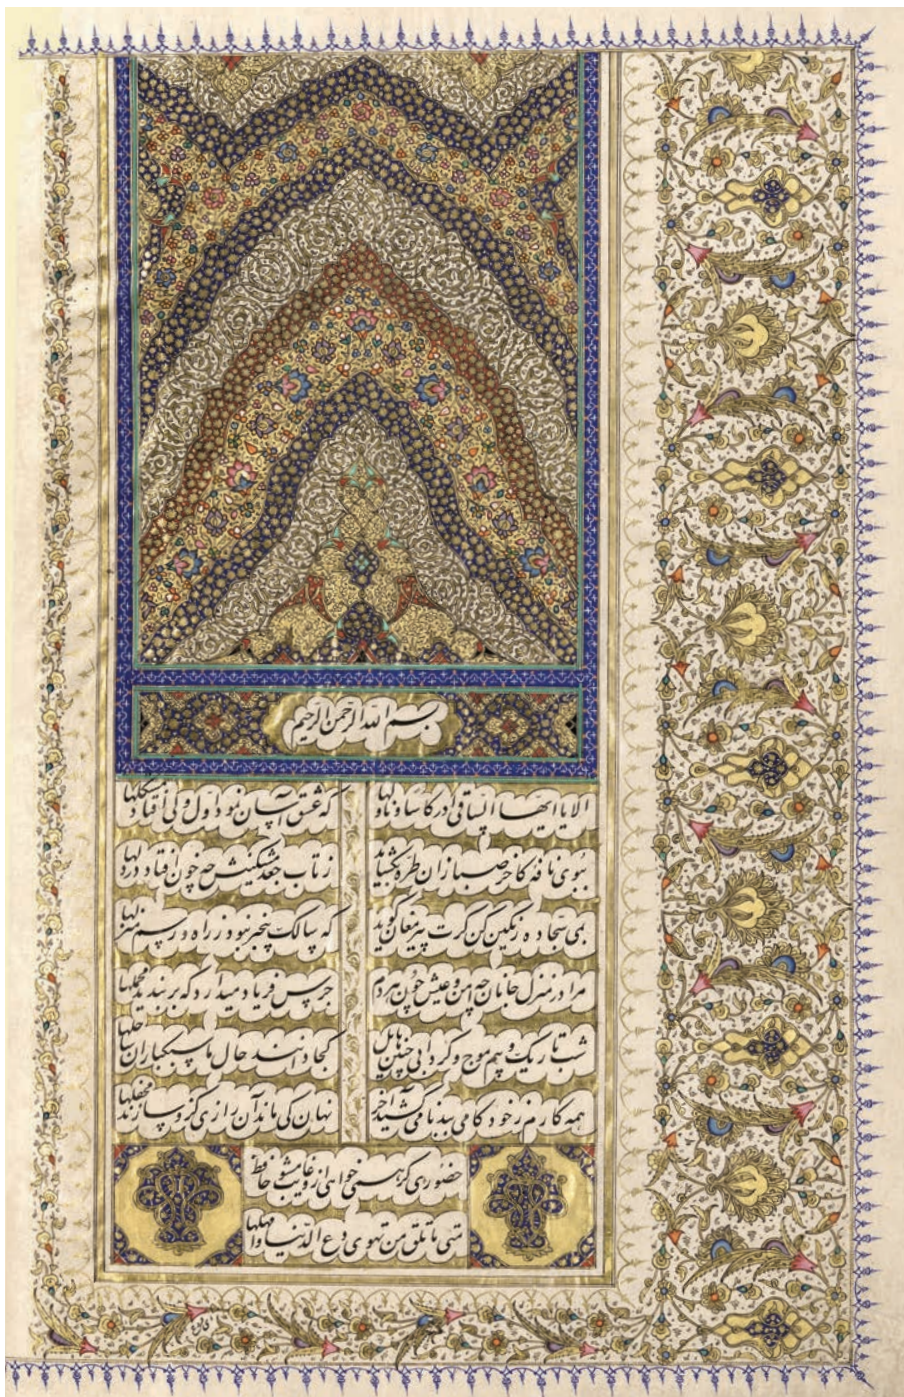 بسم الله الرحمن الرحیم
الا یا ایها الساقی ادر کاسا و ناولها که عشق آسان نمود اول ولی افتاد مشکلها
ببوی نافه کاخر صبا زان طره بگشاید ز تاب جعد مشکینش چه خون افتاد در دلها
بمی سجاده رنگین کن گرت پیر مغان گوید که سالک بیخبر نبود ز راه و رسم منزلها
مرا در منزل جانان چه امن و عیش چون هردم جرس فریاد میدارد که بربندید محملها
شب تاریک و بیم موج و گردابی چنین هایل کجا دانند حال ما سبکباران ساحلها
همه کارم ز خود کامی ببدنامی کشید آخر نهان کی ماند آن رازی کزو سازند محفلها
حضوری گر همی خواهی ازو غایب مشو حافظ
متی ما تلق من تهوی دع الدنیا و اهملها